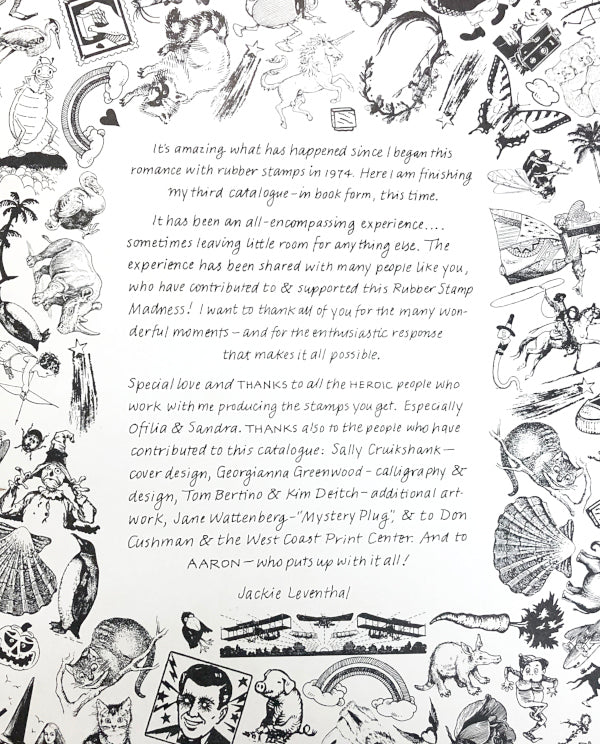 It's amazing what has happened since I began this
romance with rubber stamps in 1974. Here I am finishing
my third catalogue – in book form, this time.
It has been an all-encompassing experience....
sometimes leaving little room for anything else. The
experience has been shared with many people like you,
who have contributed to & supported this Rubber Stamp
Madness! I want to thank all of you for the many won-
derful moments – and for the enthusiastic response
that makes it all possible.
Special love and THANKS to all the HEROIC people who
work with me producing the stamps you get. Especially
Ofilia & Sandra. THANKS also to the people who have
contributed to this catalogue: Sally Cruikshank –
cover design, Georgianna Greenwood – calligraphy &
design, Tom Bertino & Kim Deitch – additional art-
work, Jane Wattenberg – "Mystery Plug", & to Don
Cushman & the West Coast Print Center. And to
AARON – who puts up with it all!
Jackie Leventhal